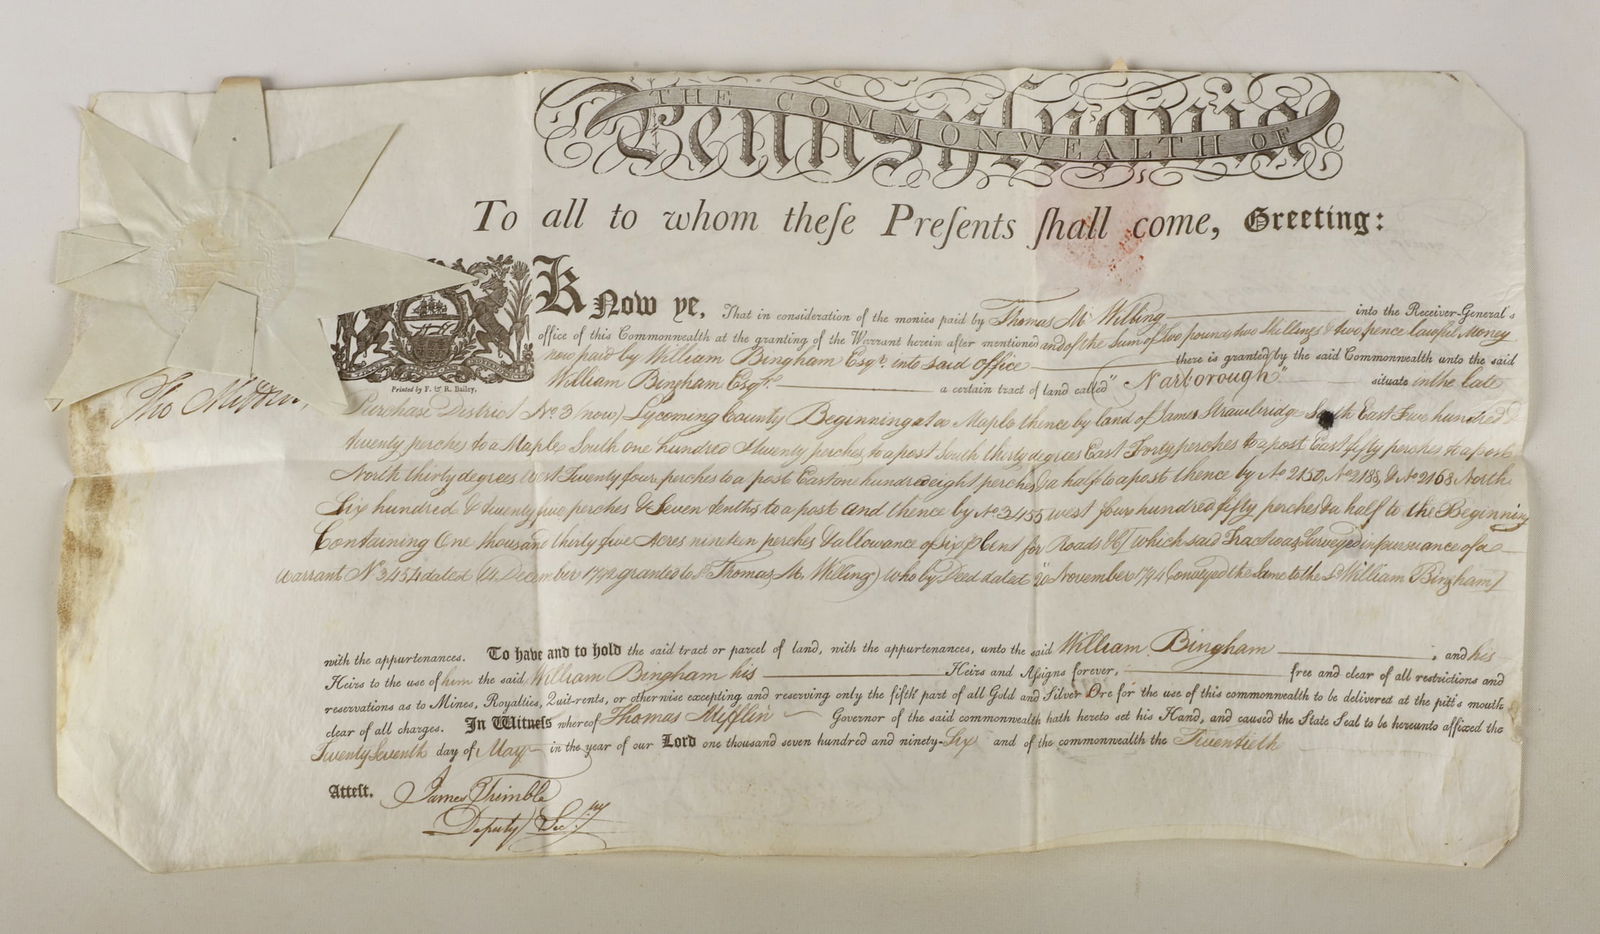 THE COMMONWEALTH OF
Pennsylvania
To all to whom theſe Preſents ſhall come, Greeting:
Know ye, That in consideration of the monies paid by Thomas M Willing into the Receiver-General's
office of this Commonwealth at the granting of the Warrant herein after mentioned and of the sum of two pounds two Shillings & two pence lawful Money
now paid by William Bingham Esqr. into said office there is granted by the said Commonwealth unto the said
William Bingham Esqr. a certain tract of land called "Narborough" situate in the late
Printed by F. & R. Bailey.
Tho Mifflin
Purchase District No 3 (now) Lycoming County Beginning at a Maple thence by land of James Strawbridge South East Five hundred &
twenty perches to a Maple South one hundred & twenty perches to a post South thirty degrees East Forty perches to a post East fifty perches to a post
North thirty degrees West Twenty four perches to a post East one hundred eight perches & a half to a post thence by No 2150, No 2188, & No 2168 North
Six hundred & twenty five perches & Seven tenths to a post and thence by No 3455 west four hundred fifty perches & a half to the Beginning
Containing One thousand thirty five Acres nineteen perches & allowance of six P Cent for Roads &c [Which said Tract was Surveyed in pursuance of a
Warrant No 3454 dated 14 December 1792 granted to sd Thomas M. Willing) who by Deed dated 20 November 1794 Conveyed the Same to the Sd William Bingham]
with the appurtenances. To have and to hold the said tract or parcel of land, with the appurtenances, unto the said William Bingham , and his
Heirs to the use of him the said William Bingham his Heirs and Aſsigns forever, free and clear of all restrictions and
reservations as to Mines, Royalties, Quit-rents, or otherwise excepting and reserving only the fifth part of all Gold and Silver Ore for the use of this commonwealth to be delivered at the pit's mouth
clear of all charges. In Witneſs whereof Thomas Mifflin Governor of the said commonwealth hath hereto set his Hand, and caused the State Seal to be hereunto affixed the
Twenty Seventh day of May in the year of our Lord one thousand seven hundred and ninety-Six and of the commonwealth the Twentieth
Atteſt. James Trimble
Deputy Secy